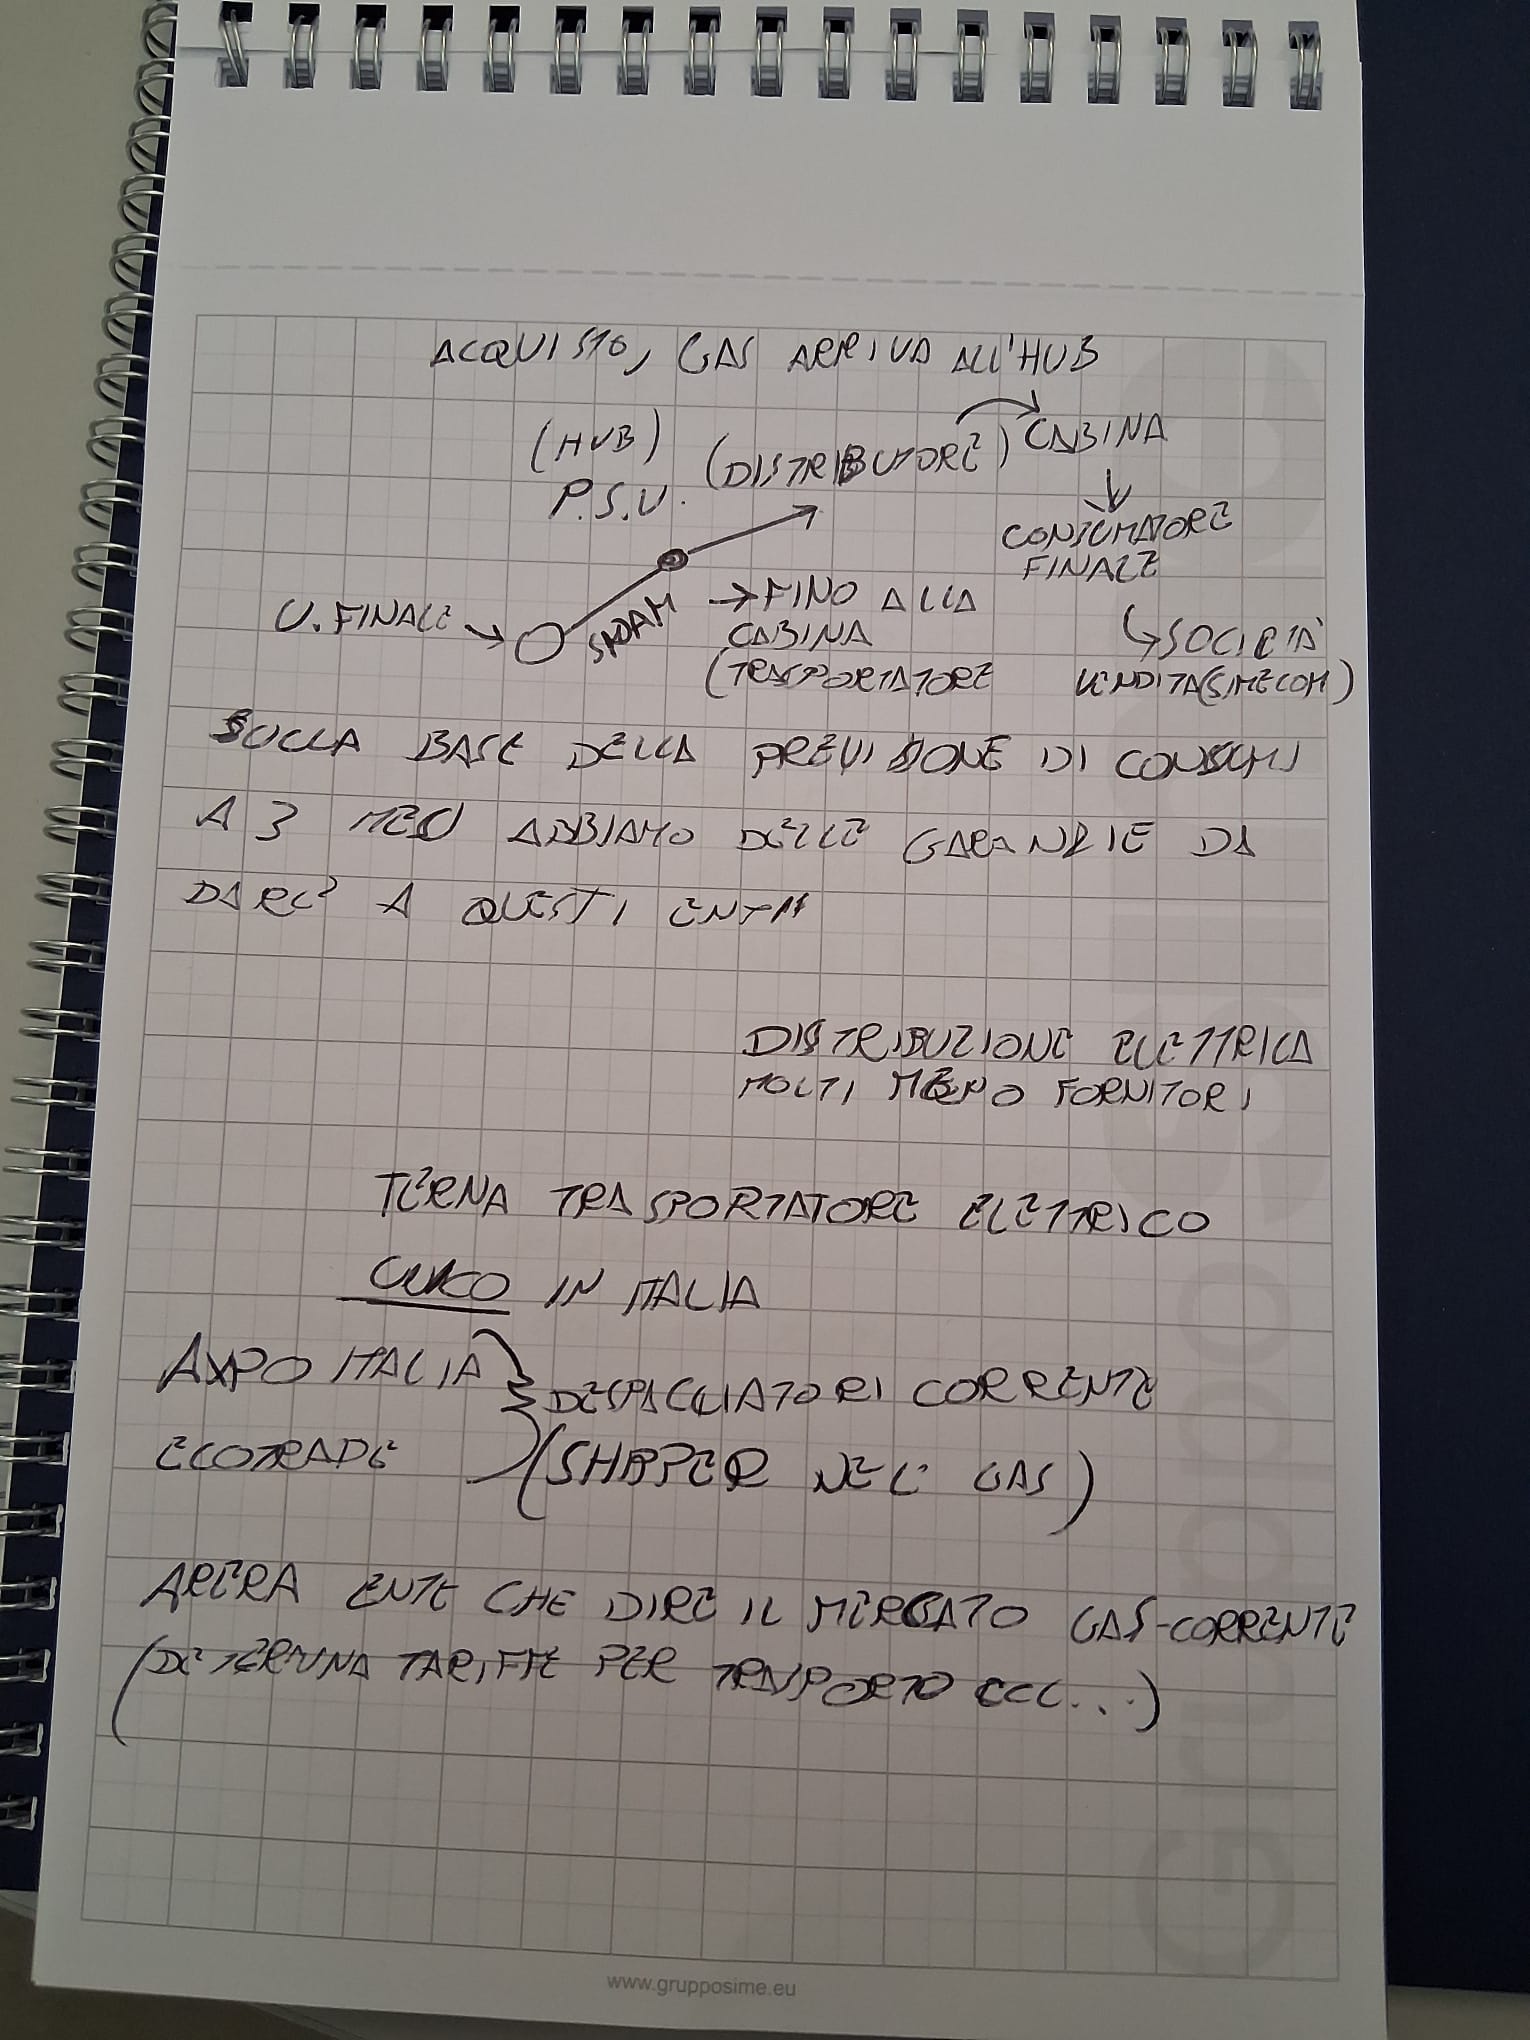 ACQUISTO, GAS ARRIVA ALL'HUB
(HUB) (DISTRIBUTORE) CABINA
P.S.V.
CONSUMATORE
FINALE
U. FINALE → → FINO ALLA
CABINA
(TRASPORTATORE
↳ SOCIETÀ
VENDITA (SIMECOM)
SULLA BASE DELLA PREVISIONE DI CONSUMI
A 3 MESI ABBIAMO DELLE GARANZIE DA
DARE A QUESTI ENTI
DISTRIBUZIONE ELETTRICA
MOLTI MENO FORNITORI
TERNA TRASPORTATORE ELETTRICO
IN ITALIA
AXPO ITALIA
DESPACCIATORI CORRENTE
ECOTRADE
(SHAPER NEL GAS)
ARERA ENTE CHE DIRE IL MERCATO GAS-CORRENTE
(DETERMINA TARIFFE PER TRASPORTO ECC...)
Gruppo Sime
www.grupposime.eu